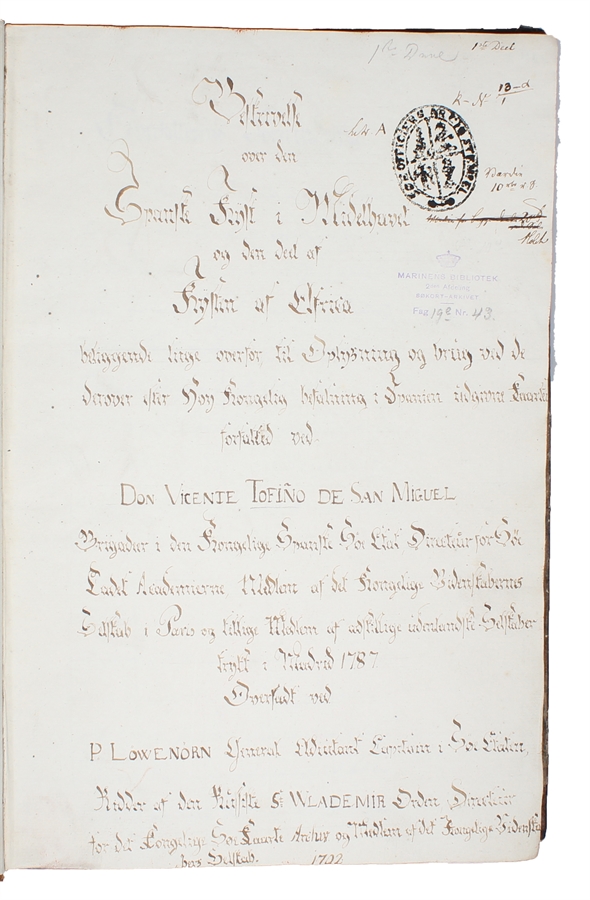 1ste Deel
K - No 13-d
1
Litr A
SØE OFFICIERS
MARINENS BIBLIOTEK
Fag 19e Nr. 43.
Beskrivelse
over den
Spanske Kyst i Midelhavet
og den deel af
Kysten af Africa
beliggende lige overfor, til Oplysning og brug ved de
derover efter Høy Kongelig befalning i Spanien udgivne Kaarte
forfatted ved
DON VICENTE TOFIÑO DE SAN MIGUEL
Brigadier i den Kongelige Spanske Søe Etat, Directeur for Søe
Cadet Academierne, Medlem af det Kongelige Videnskabernes
Selskab i Paris og tillige Medlem af adskillige udenlandske Selskaber
trykt i Madrid 1787.
Oversadt ved
P. LÖWENÖRN General Adjutant Captain i Søe Etaten,
Ridder af den Russiske St WLADEMIR Orden, Directeur
for det Kongelige Søe Kaarte Archiv og Medlem af det Kongelige Videnska
bers Selskab. 1792